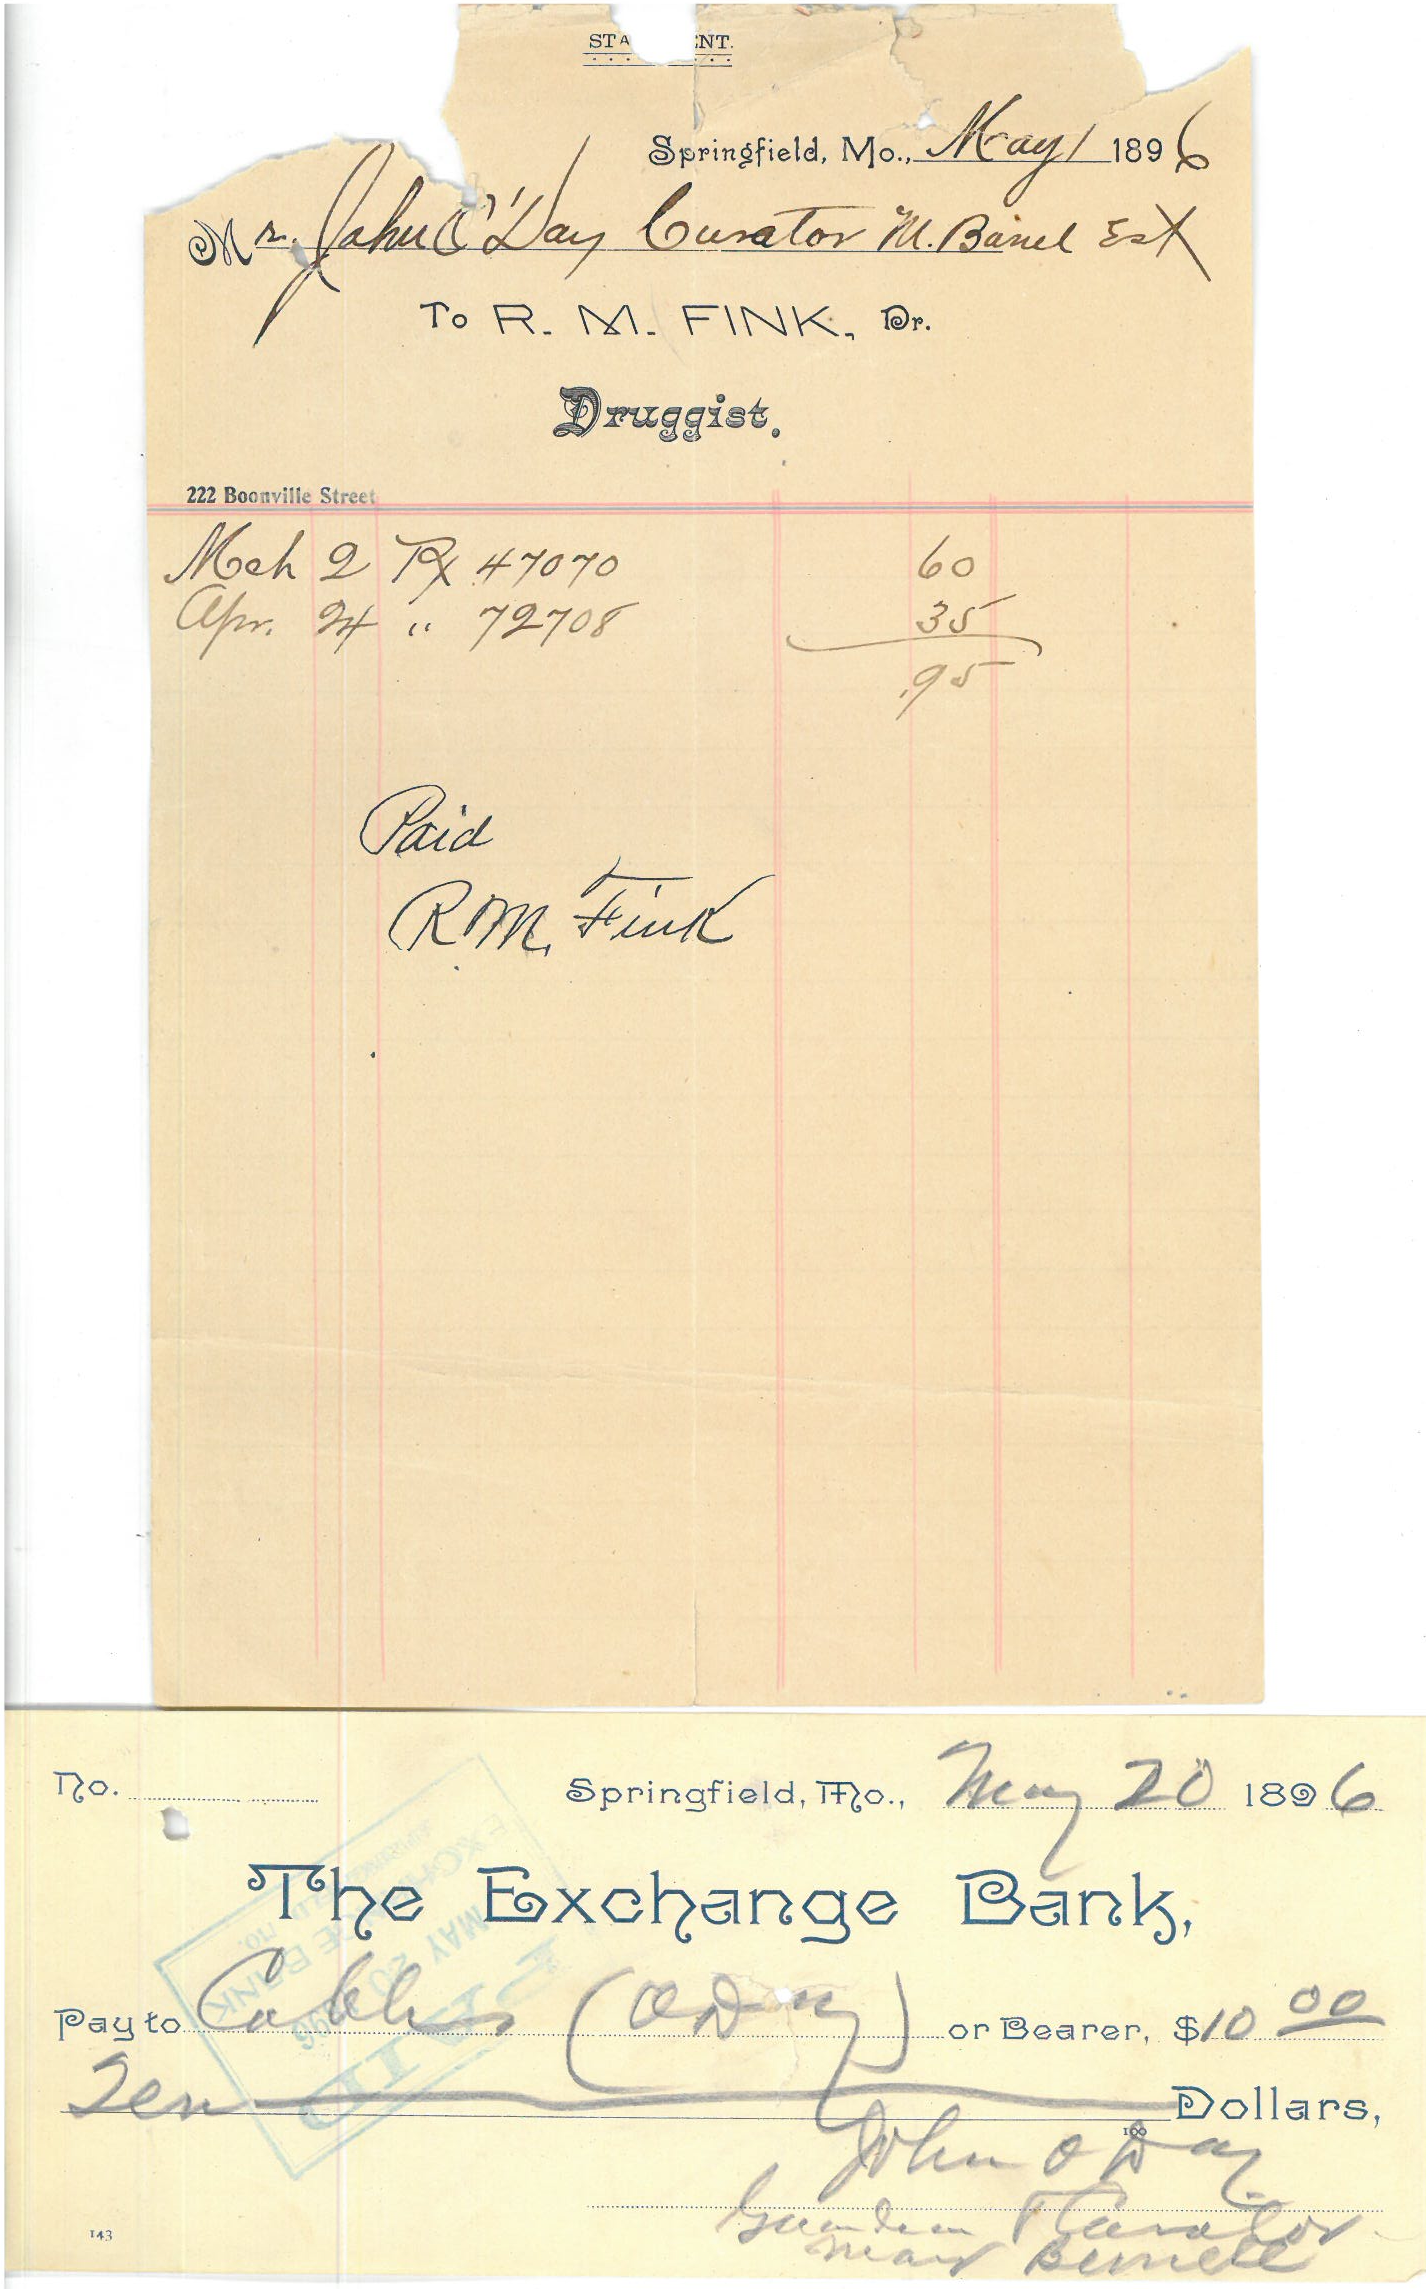 STA ENT.
Springfield, Mo., May 1 1896
Mr. John O'Day Curator M. Barrel Est
To R. M. FINK, Dr.
Druggist.
222 Boonville Street
Mch 2 Rx 47070 60
Apr. 24 " 72708 35
.95
Paid
R M. Fink
No. Springfield, Mo., May 20 1896
The Exchange Bank,
Pay to (O Day) or Bearer, $10 00
Ten Dollars,
100
John O Day
Guardian & Curator
143
Mary Bernell
PAID
MAY 20 1896
EXCHANGE BANK
MO.